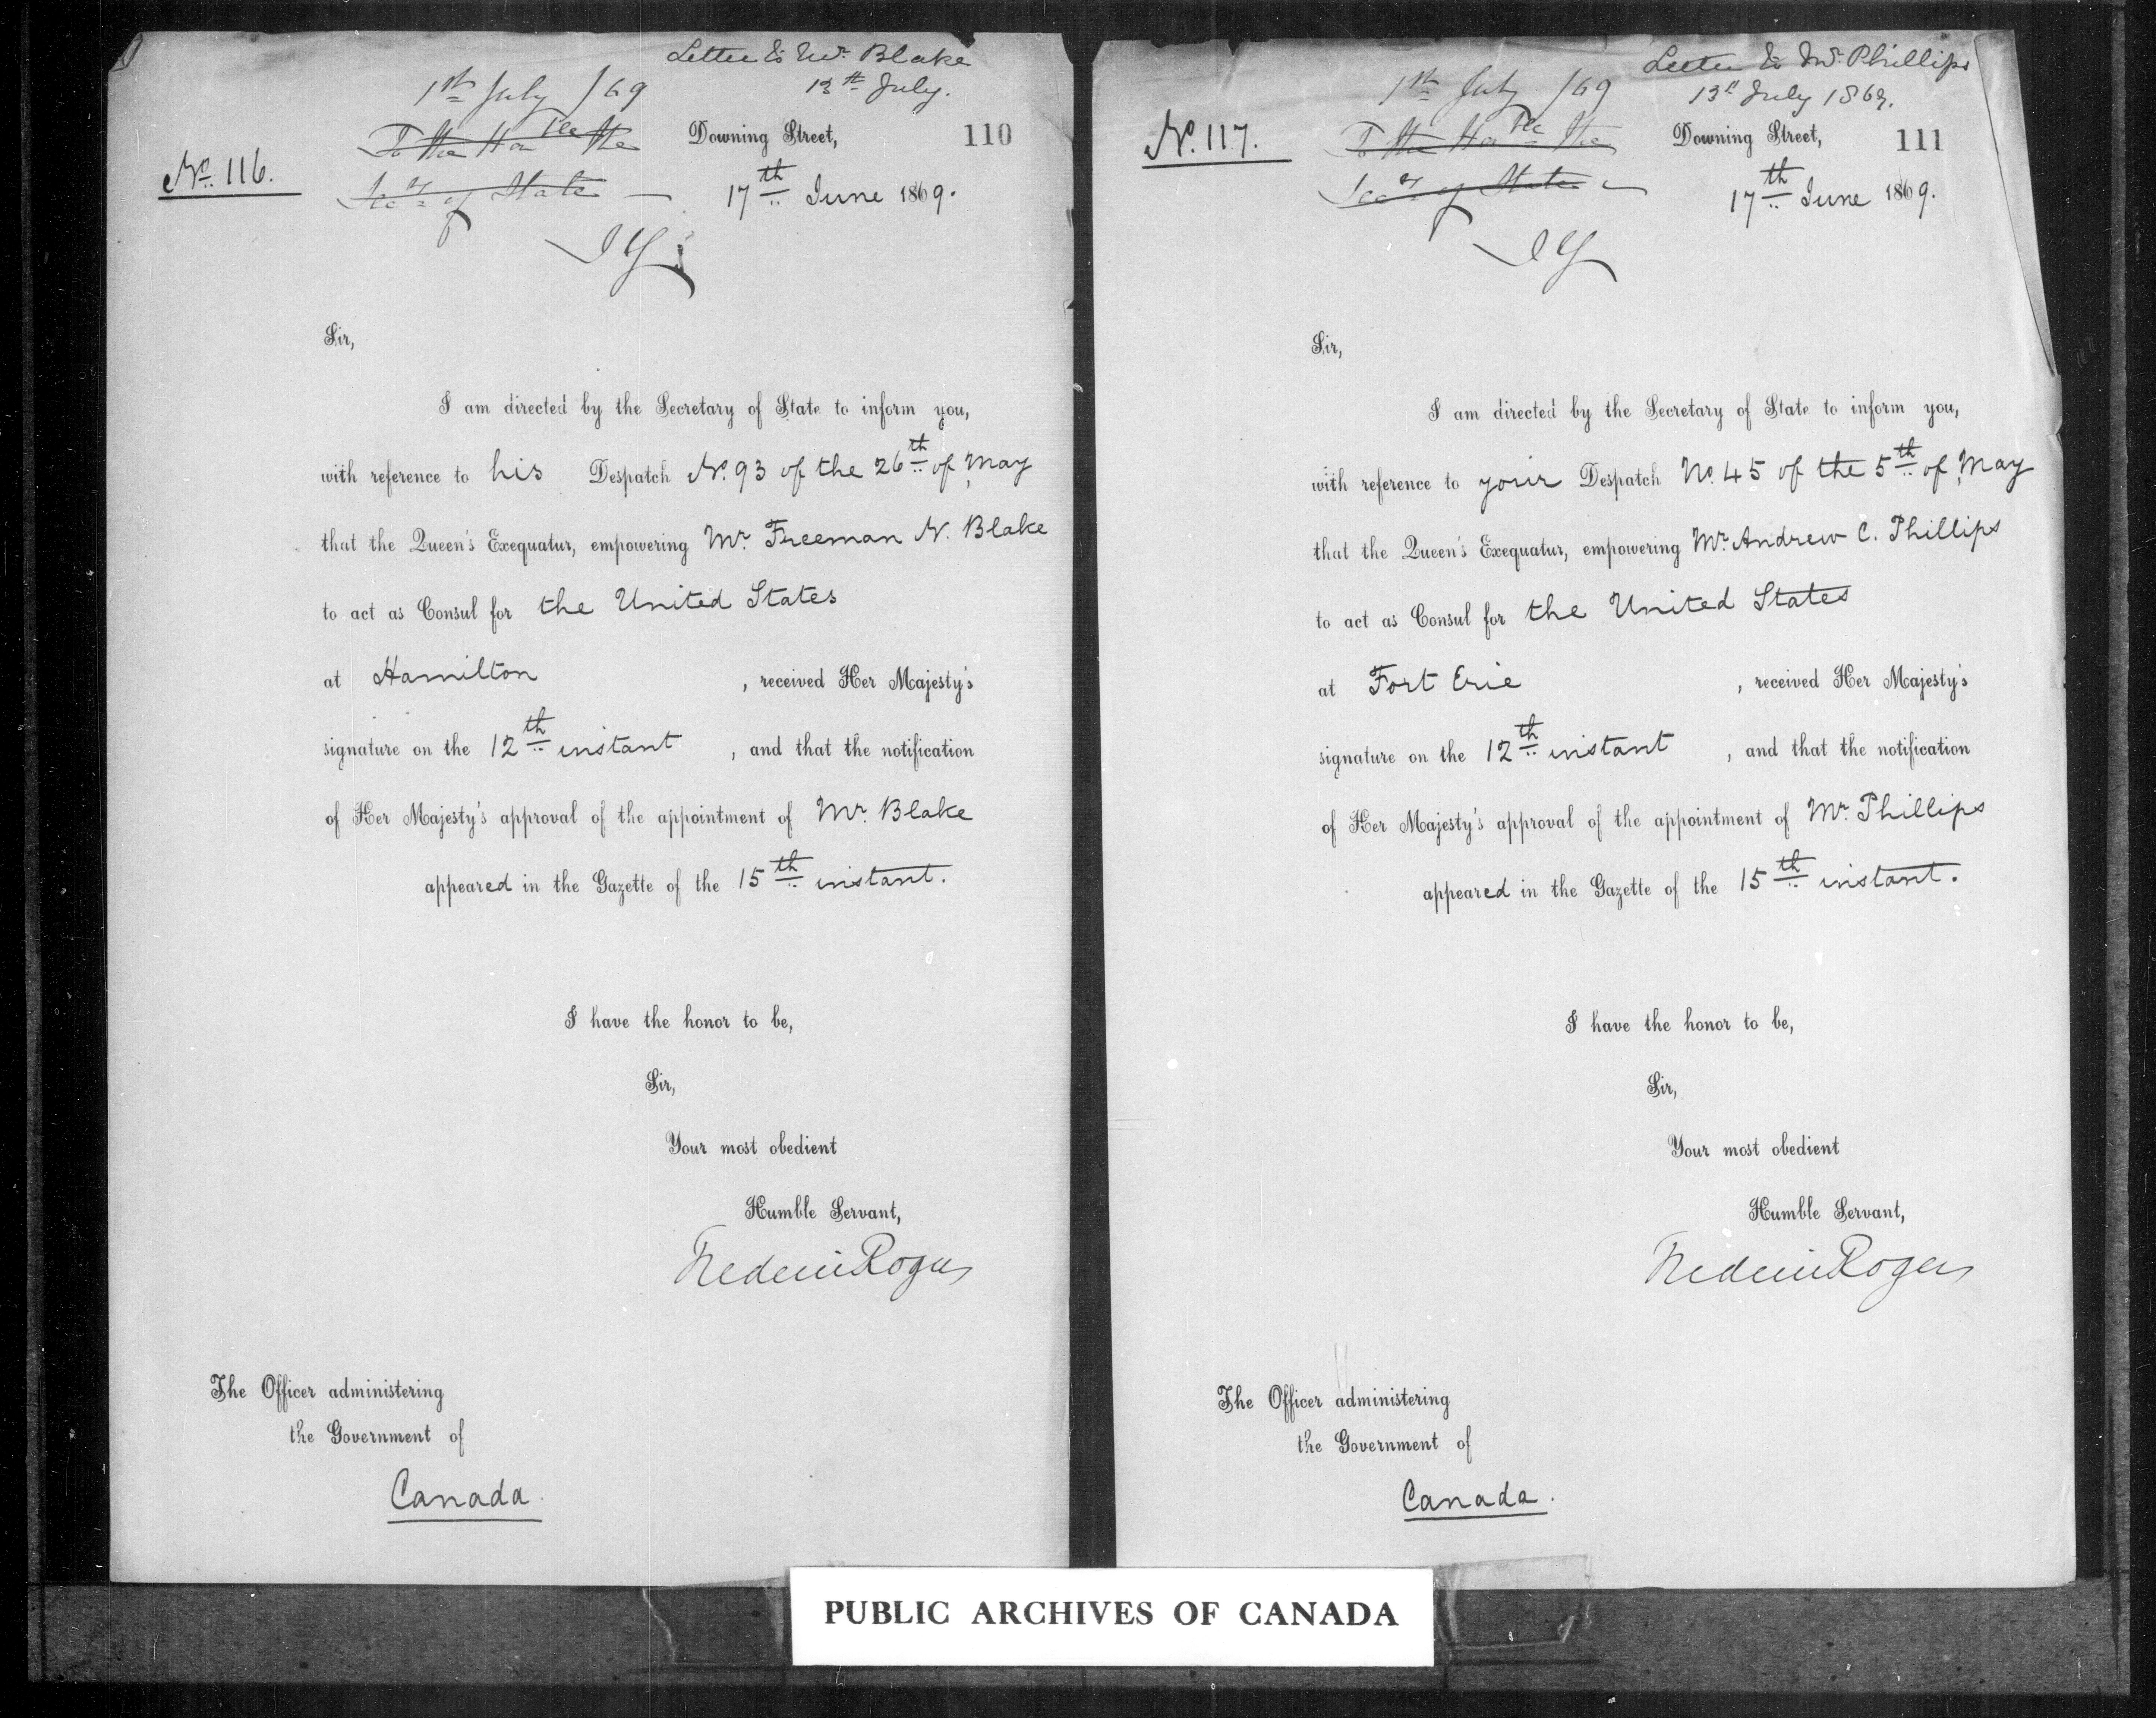 Letter to Mr. Blake
13th July.
1st July /69
To the Honble the
Secy of State
No. 116.
Downing Street,
110
17th June 1869.
JY
Sir,
I am directed by the Secretary of State to inform you,
with reference to his Despatch No. 93 of the 26th of May
that the Queen's Exequatur, empowering Mr. Freeman N. Blake
to act as Consul for the United States
at Hamilton , received Her Majesty's
signature on the 12th instant , and that the notification
of Her Majesty's approval of the appointment of Mr. Blake
appeared in the Gazette of the 15th instant.
I have the honor to be,
Sir,
Your most obedient
Humble Servant,
Frederic Rogers
The Officer administering
the Government of
Canada.
Letter to Mr. Phillips
13th July 1869.
1st July /69
To the Honble the
Secy of State
No. 117.
Downing Street,
111
17th June 1869.
JY
Sir,
I am directed by the Secretary of State to inform you,
with reference to your Despatch No. 45 of the 5th of May
that the Queen's Exequatur, empowering Mr. Andrew C. Phillips
to act as Consul for the United States
at Fort Erie , received Her Majesty's
signature on the 12th instant , and that the notification
of Her Majesty's approval of the appointment of Mr. Phillips
appeared in the Gazette of the 15th instant.
I have the honor to be,
Sir,
Your most obedient
Humble Servant,
Frederic Rogers
The Officer administering
the Government of
Canada.
PUBLIC ARCHIVES OF CANADA